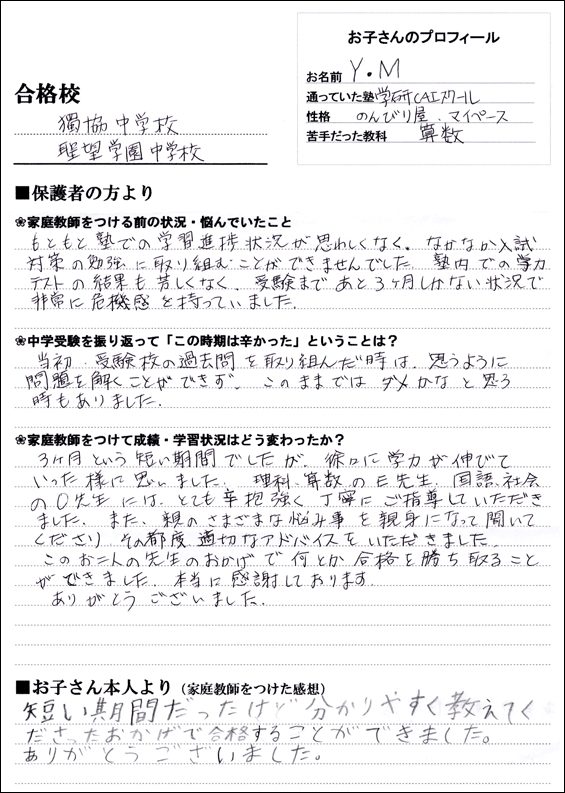 お子さんのプロフィール
お名前 Y.M
通っていた塾 学研CAIスクール
性格 のんびり屋、マイペース
苦手だった教科 算数
合格校
獨協中学校
聖望学園中学校
■保護者の方より
❀家庭教師をつける前の状況・悩んでいたこと
もともと塾での学習進捗状況が思わしくなく、なかなか入試
対策の勉強に取り組むことができませんでした。塾内での学力
テストの結果も芳しくなく、受験まであと3ヶ月しかない状況で
非常に危機感を持っていました。
❀中学受験を振り返って「この時期は辛かった」ということは？
当初、受験校の過去問を取り組んだ時は、思うように
問題を解くことができず、このままではダメかなと思う
時もありました。
❀家庭教師をつけて成績・学習状況はどう変わったか？
3ヶ月という短い期間でしたが、徐々に学力が伸びて
いった様に思いました。理科、算数のE先生、国語、社会
のO先生には、とても辛抱強く丁寧にご指導していただき
ました。また、親のさまざまな悩み事を親身になって聞いて
くださり、その都度適切なアドバイスをいただきました。
このお二人の先生のおかげで何とか合格を勝ち取ること
ができました。本当に感謝しております。
ありがとうございました。
■お子さん本人より（家庭教師をつけた感想）
短い期間だったけど分かりやすく教えてく
ださったおかげで合格することができました。
ありがとうございました。